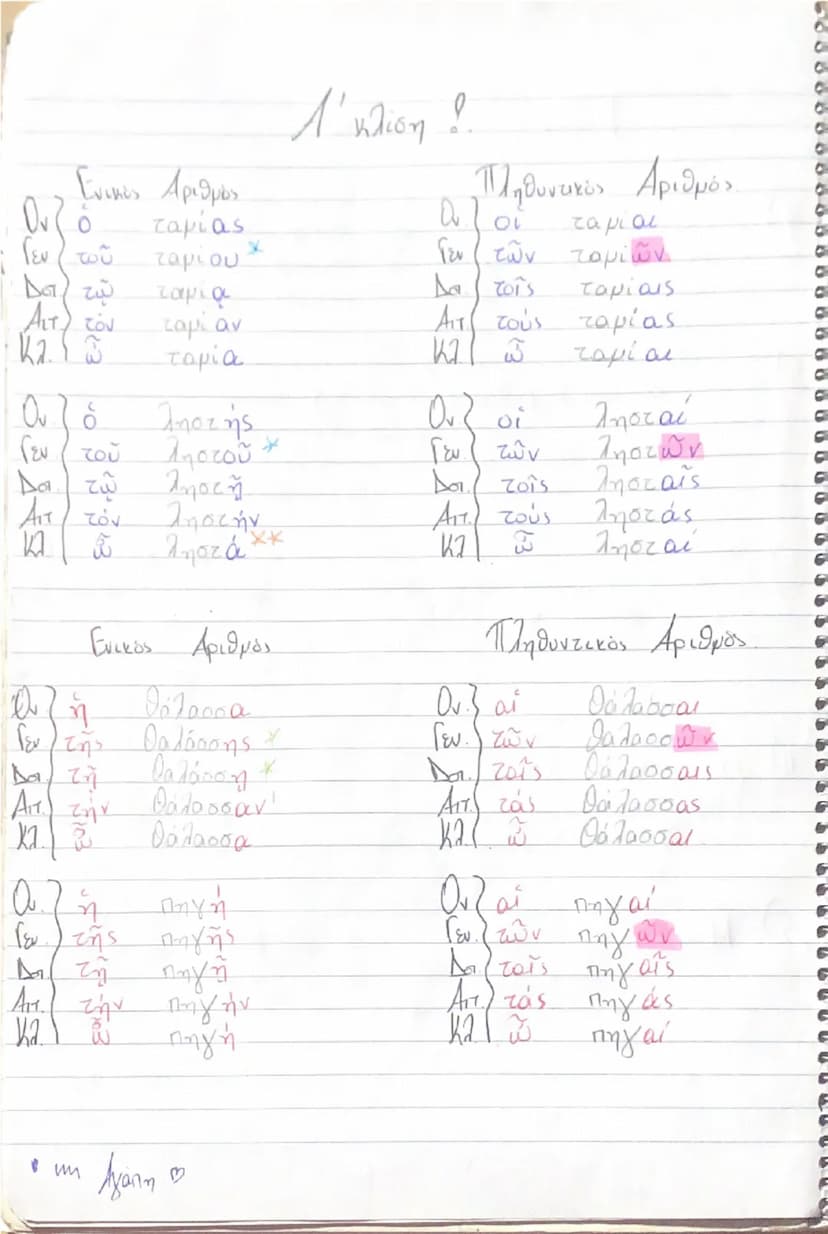 Α' κλίση !
Ενικός Αριθμός Πληθυντικός Αριθμός
Ον ὁ ταμίας Ον οἱ ταμίαι
Γεν τοῦ ταμίου * Γεν τῶν ταμιῶν
Δοτ τῷ ταμίᾳ Δοτ τοῖς ταμίαις
Αιτ τόν ταμίαν Αιτ τούς ταμίας
Κλ. ὦ ταμία Κλ ὦ ταμίαι
Ον ὁ ληστής Ον οἱ λησταί
Γεν τοῦ ληστοῦ * Γεν. τῶν ληστῶν
Δοτ. τῷ ληστῇ Δοτ. τοῖς λησταῖς
Αιτ τόν ληστήν Αιτ. τούς ληστάς
Κλ ὦ ληστά ** Κλ ὦ λησταί
Ενικός Αριθμός Πληθυντικός Αριθμός
Ον ἡ θάλασσα Ον. αἱ θάλασσαι
Γεν τῆς θαλάσσης * Γεν. τῶν θαλασσῶν
Δοτ τῇ θαλάσσῃ * Δοτ. ταῖς θάλασσαις
Αιτ. τήν θάλασσαν Αιτ. τάς θάλασσας
Κλ ὦ θάλασσα Κλ. ὦ θάλασσαι
Ον. ἡ πηγή Ον αἱ πηγαί
Γεν. τῆς πηγῆς Γεν. τῶν πηγῶν
Δοτ. τῇ πηγῇ Δοτ ταῖς πηγαῖς
Αιτ. τήν πηγήν Αιτ. τάς πηγάς
Κλ ὦ πηγή Κλ. ὦ πηγαί
Αγάπη ♡